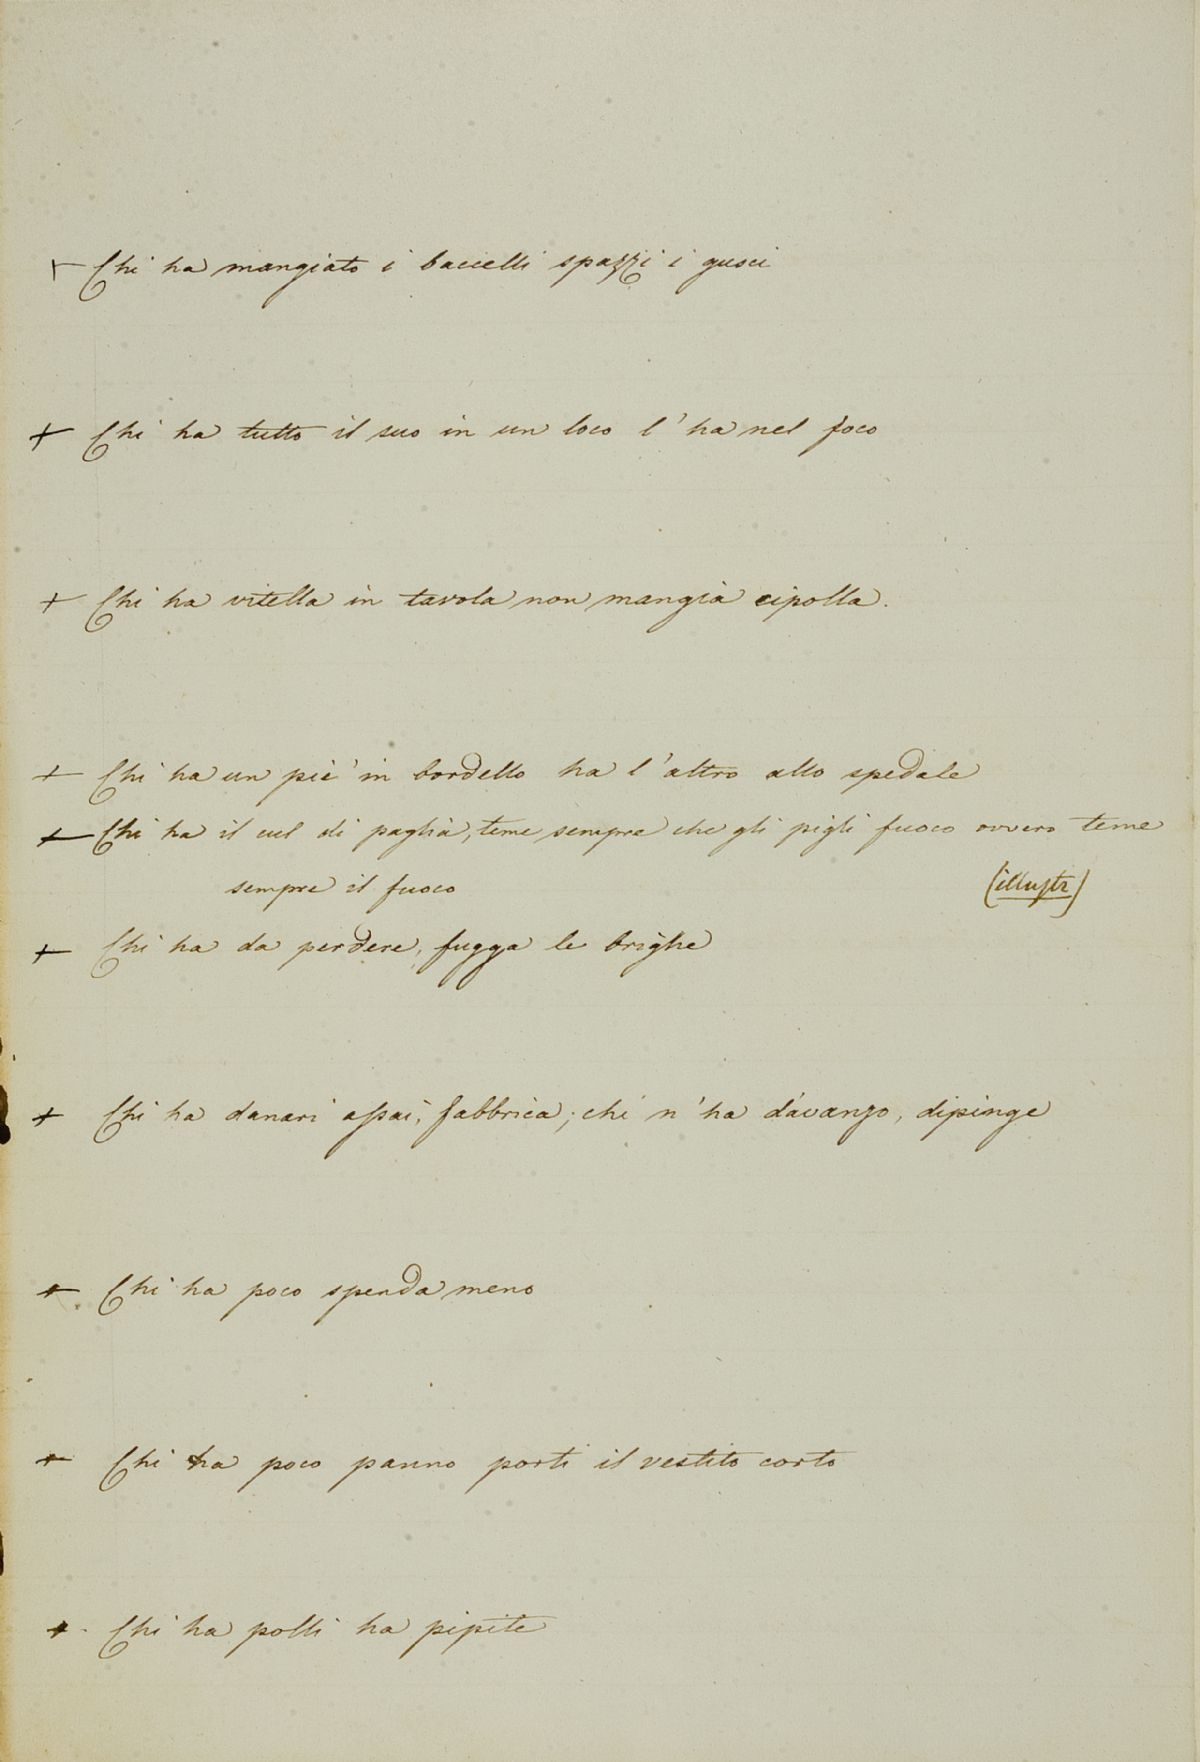 + Chi ha mangiato i baccelli spazzi i gusci
+ Chi ha tutto il suo in un loco l'ha nel foco
+ Chi ha vitella in tavola non mangia cipolla.
+ Chi ha un piè in bordello ha l'altro allo spedale
+ Chi ha il cul di paglia, teme sempre che gli pigli fuoco ovvero teme
sempre il fuoco (illustr)
+ Chi ha da perdere, fugga le brighe
+ Chi ha danari assai, fabbrica; chi n'ha d'avanzo, dipinge
+ Chi ha poco spenda meno
+ Chi ha poco panno porti il vestito corto
+ Chi ha polli ha pipite